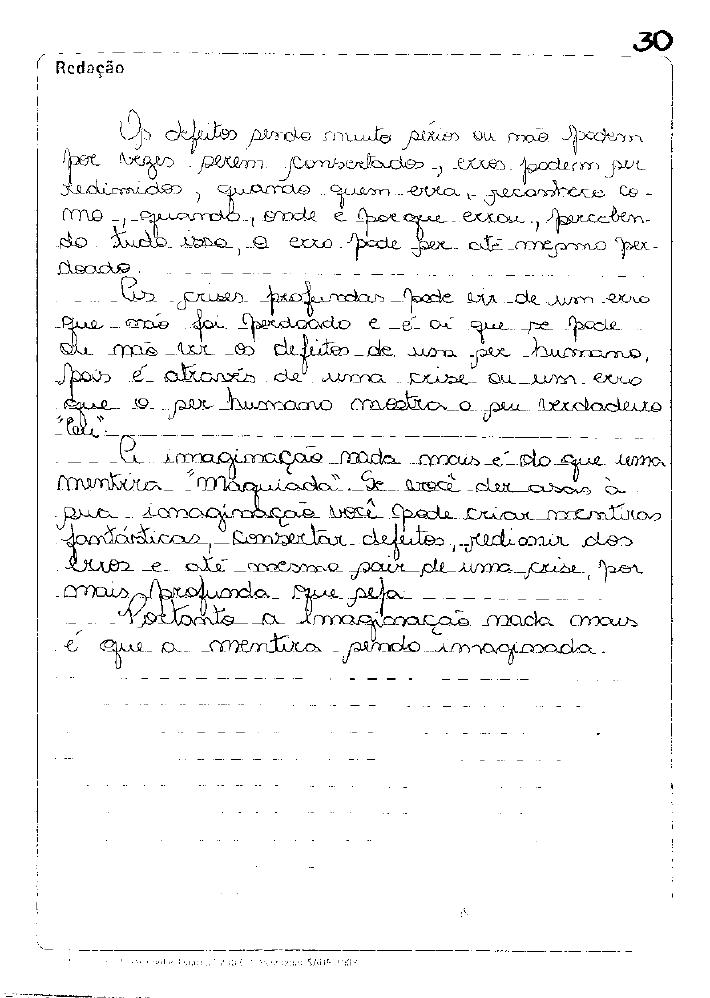 30
Redação
Os defeitos sendo muito sérios ou não podem
por vezes serem consertados, erros podem ser
redimidos, quando quem erra, reconhece co-
mo, quando, onde e porque errou, perceben-
do tudo isso, o erro pode ser até mesmo per-
doado.
As crises profundas pode vir de um erro
que não foi perdoado e é aí que se pode
ou não ver os defeitos de um ser humano,
pois é através de uma crise ou um erro
que o ser humano mostra o seu verdadeiro
"eu".
A imaginação nada mais é do que uma
mentira "maquiada". Se você der asas à
sua imaginação você pode criar mentiras
fantásticas, consertar defeitos, redimir dos
erros e até mesmo sair de uma crise, por
mais profunda que seja
Portanto a imaginação nada mais
é que a mentira sendo imaginada.